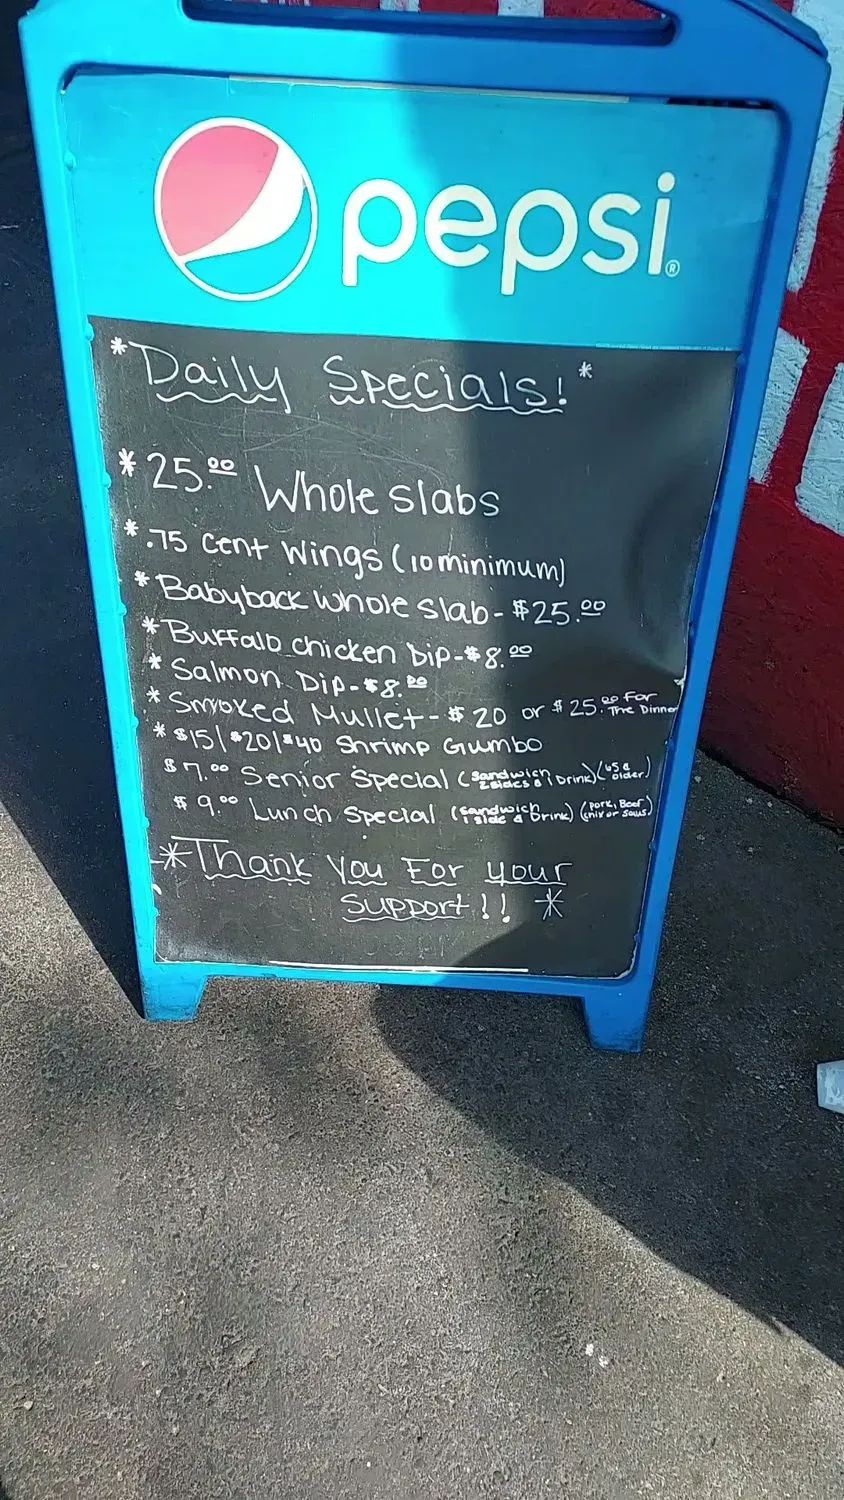 pepsi®
*Daily Specials!*
*25.00 Whole slabs
*.75 cent wings (10 minimum)
*Babyback whole slab - $25.00
*Buffalo chicken Dip - $8.00
*Salmon Dip - $8.00
*Smoked Mullet - $20 or $25.00 For The Dinner
*$15/$20/$40 Shrimp Gumbo
$7.00 Senior Special (sandwich 2 sides & Drink) (65 & older)
$9.00 Lunch Special (sandwich 1 side & Drink) (pork, Beef
*Thank You For your
Support!! *